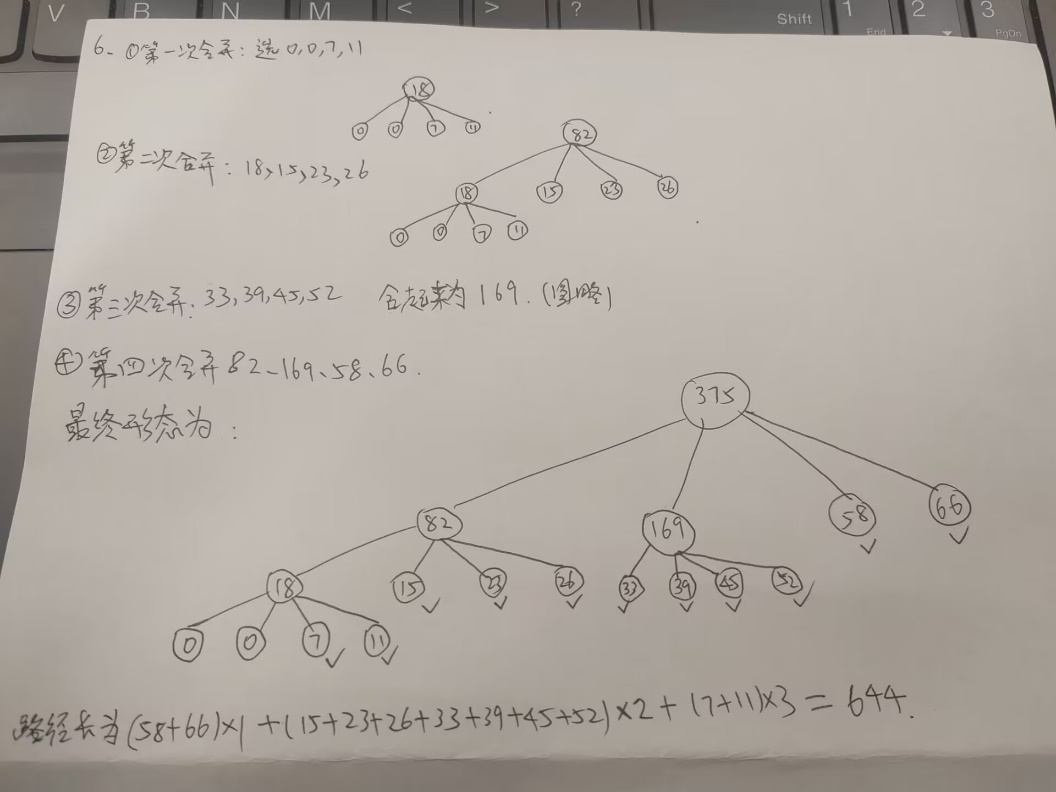 V B N M < > ? Shift 1 End 2 3 PgDn
6. ①第一次合并：选0,0,7,11
18
0 0 7 11
②第二次合并：18,15,23,26
82
18 15 23 26
0 0 7 11
③第三次合并：33,39,45,52 合起来为169.(图略)
④第四次合并82、169、58、66.
最终形态为：
375
82 169 58 66
18 15 23 26 33 39 45 52
0 0 7 11
路径长为(58+66)×1+(15+23+26+33+39+45+52)×2+(7+11)×3=644.